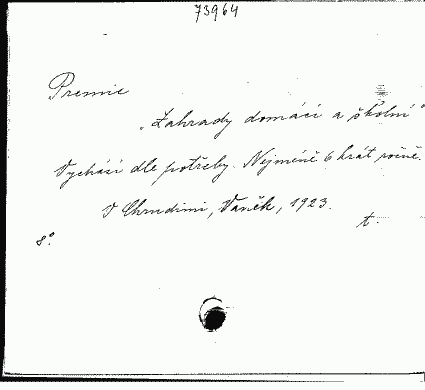 73964
Premie
„Zahrady domácí a školní"
Vychází dle potřeby. Nejméně 6 krát ročně.
V Chrudimi, Vaněk, 1923.
t.
8°.